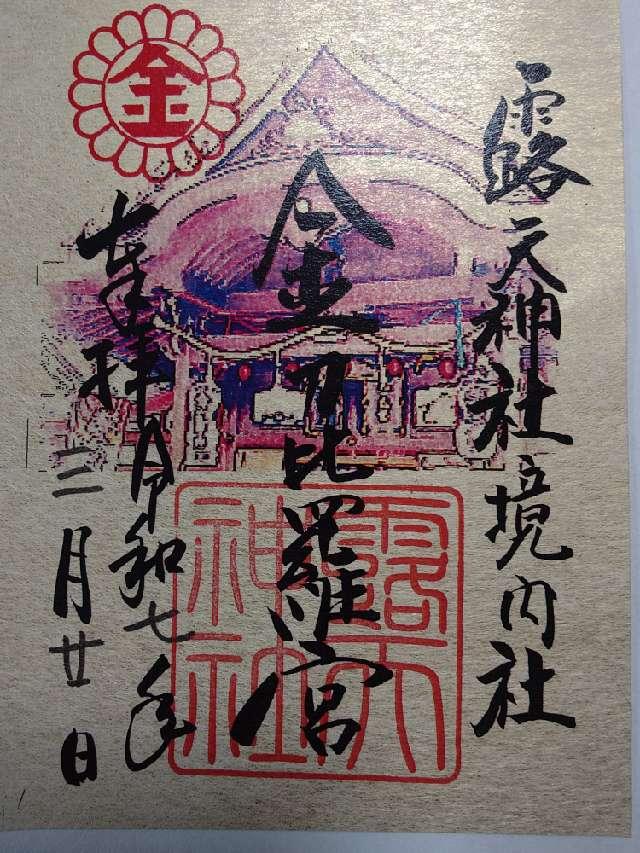 露天神社境内社
金刀比羅宮
奉拝 令和七年
三月廿日
金
露天
神社